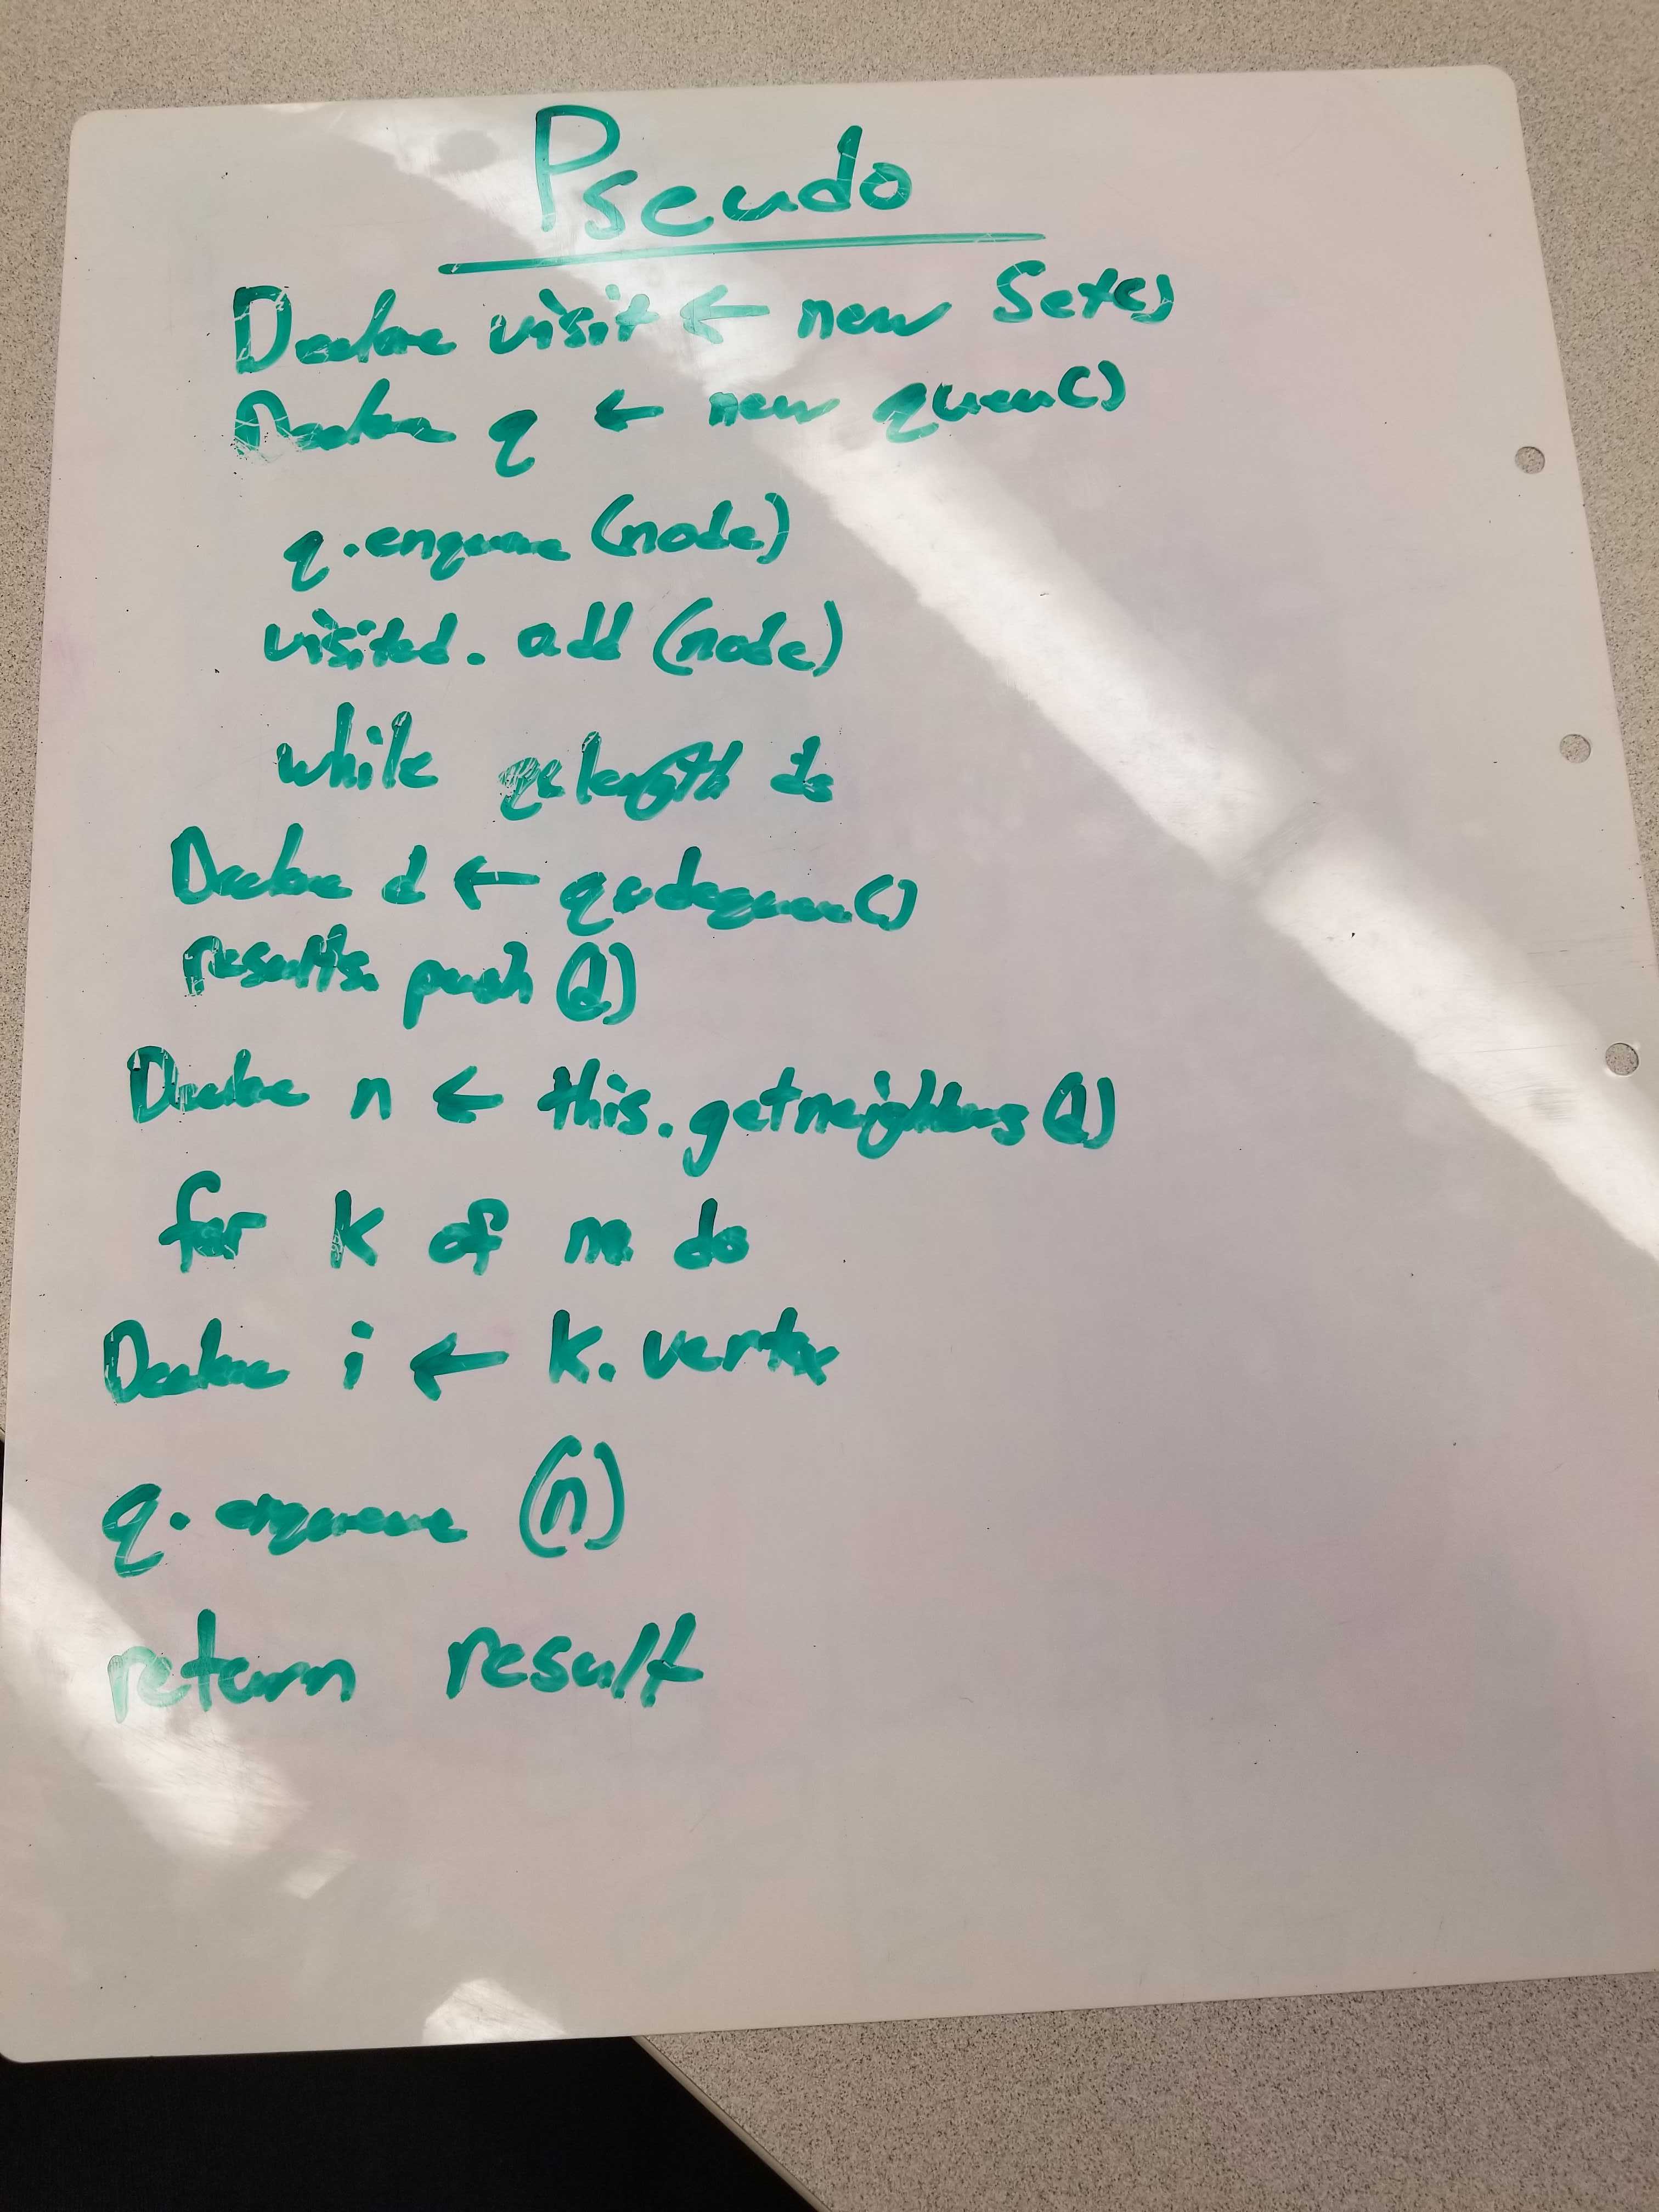 Pseudo
Declare visit ← new Set()
Declare q ← new queue()
q.enqueue (node)
visited. add (node)
while q.length do
Declare d ← q.dequeue()
results. push (d)
Declare n ← this.getneighbors (d)
for k of n do
Declare i ← k.vertex
q.enqueue (n)
return result